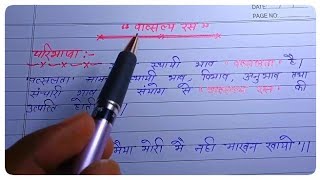 DATE
PAGE NO.
" वात्सल्य रस "
परिभाषा :-
स्थायी भाव " वत्सलता " है।
वत्सलता स्थायी भाव, विभाव, अनुभाव तथा
संचारी भाव संयोग से " वात्सल्य रस " की
उत्पत्ति होती
मैया मोरी मै नही माखन खायो ।।